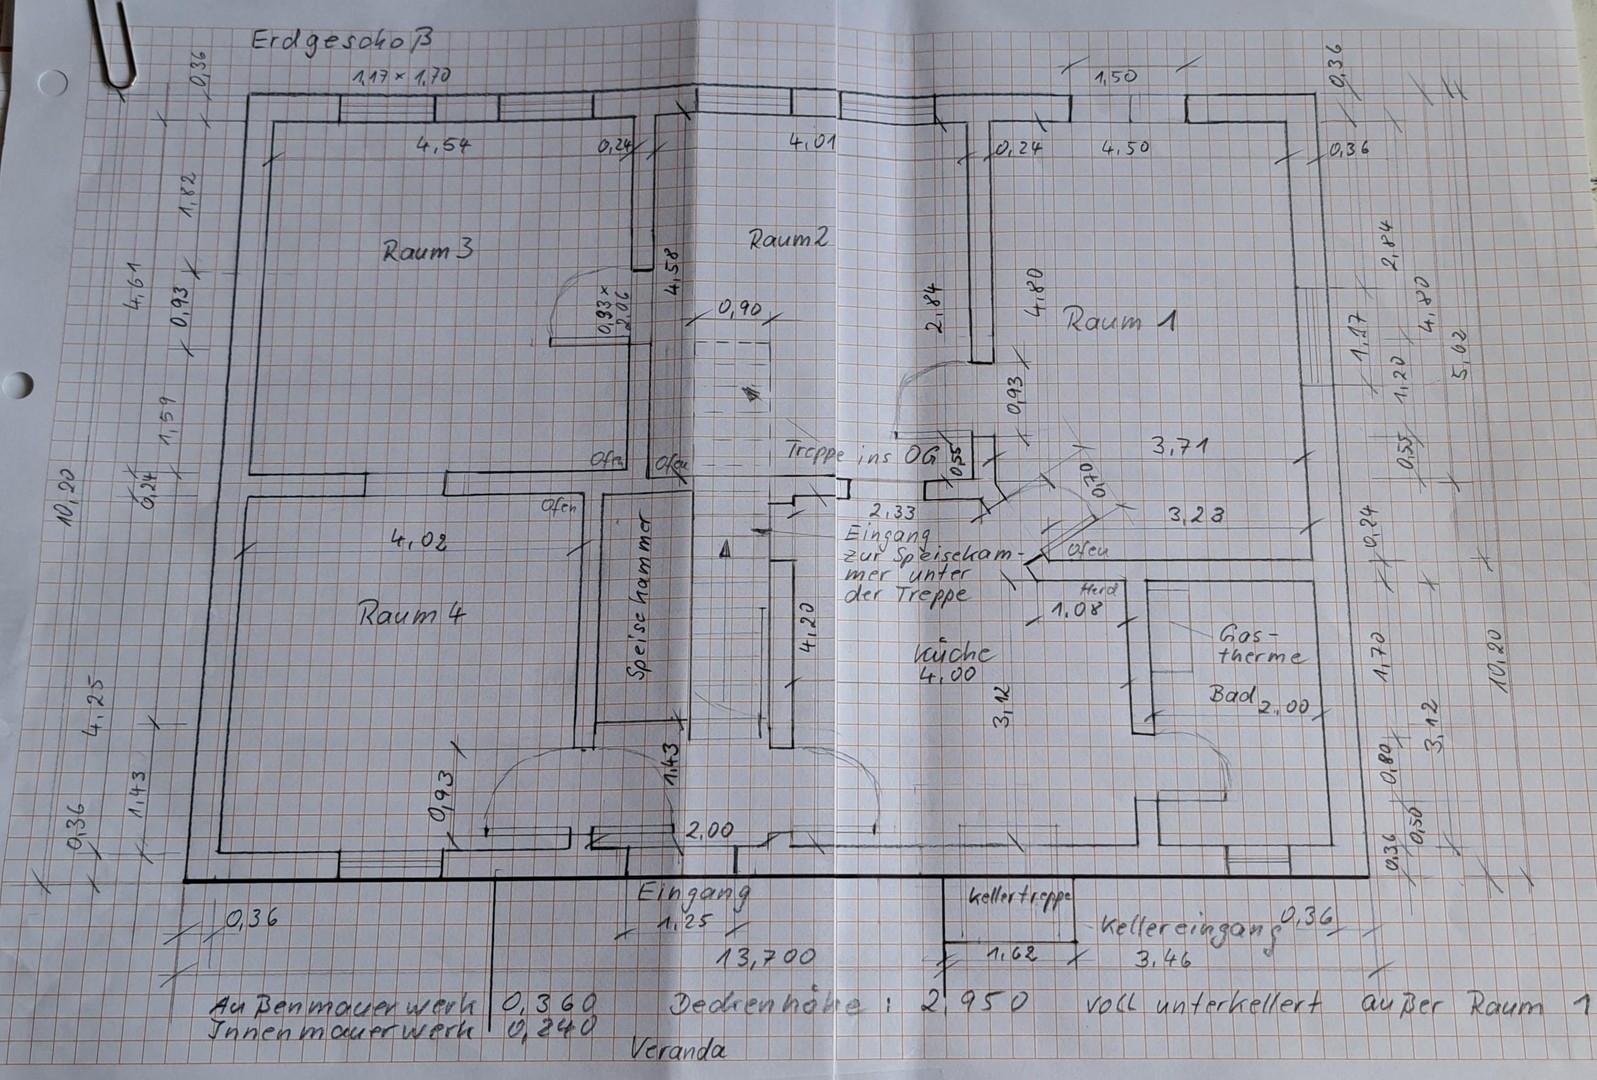 Erdgeschoß
1,17 × 1,70
0,36
1,50
0,36
4,54
0,24
4,01
0,24
4,50
0,36
1,82
Raum 3
Raum 2
2,84
4,61
4,58
0,93
0,93 ×
2,06
0,90
2,84
4,80
Raum 1
1,17
4,80
1,20
5,62
1,59
0,93
Treppe ins OG
0,55
3,71
0,55
Ofen
Ofen
0,24
10,20
Ofen
0,70
2,33
3,23
0,24
4,02
Eingang
zur Speisekam-
mer unter
der Treppe
Ofen
Speisekammer
Herd
1,08
Raum 4
4,20
Küche
4,00
Gas-
therme
1,70
10,20
Bad
2,00
3,12
3,12
4,25
1,43
0,93
1,43
0,80
0,36
2,00
0,50
0,36
Eingang
1,25
Kellertreppe
0,36
Kellereingang
0,36
13,700
1,62
3,46
Außenmauerwerk 0,360
Innenmauerwerk 0,240
Deckenhöhe : 2,950 voll unterkellert außer Raum 1
Veranda